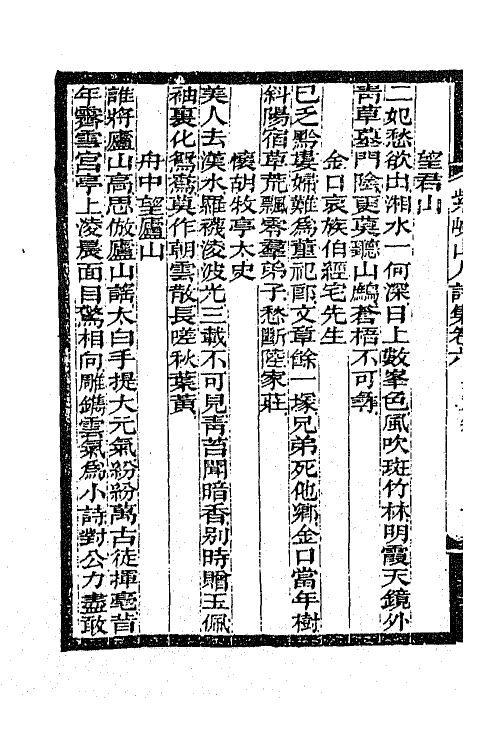 紫峴山人詩集卷六
望君山
二妃愁欲出湘水一何深日上數峯色風吹斑竹林明霞天鏡外
靑草墓門陰更莫聽山鷓蒼梧不可尋
金口哀族伯經宅先生
已乏黔婁婦難爲董祀郎文章餘一塚兄弟死他鄉金口當年樹
斜陽宿草荒飄零羣弟子愁斷陸家莊
懷胡牧亭太史
美人去漢水羅襪淩波光三載不可見靑苔聞暗香別時贈玉佩
袖裏化鴛鴦莫作朝雲散長嗟秋葉黃
舟中望廬山
誰將廬山高思倣廬山謠太白手提大元氣紛紛萬古徒揮毫昔
年霽雪宮亭上淩晨面目驚相向雕鐫雲氣爲小詩對公力盡敢